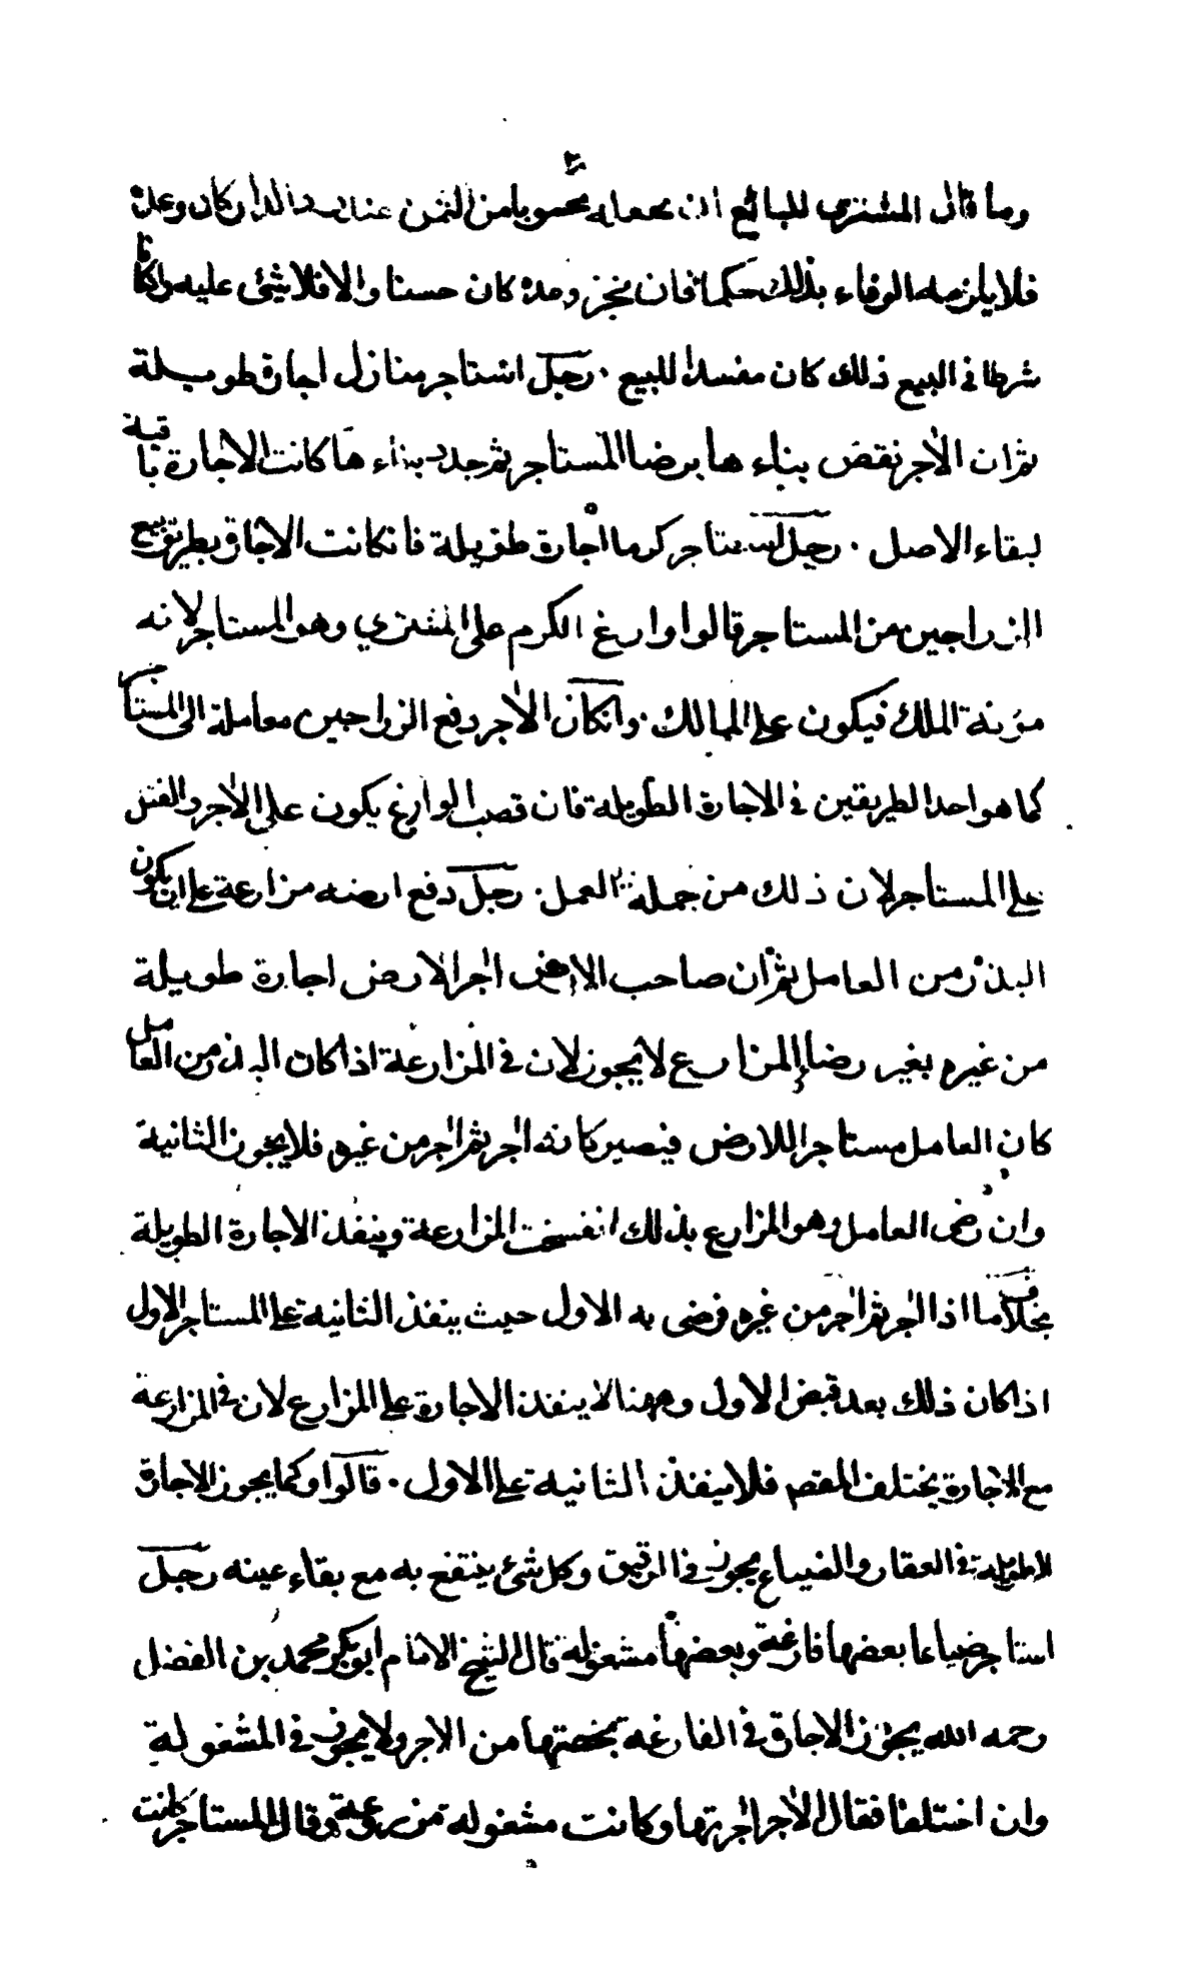 وما قال المشتري للبائع ان محعله محسوبا من الثمن عند كان وعدا
فلا يلزمه الوفاء بذلك حكما فان نجز وعده كان حسنا والا فلا شئ عليه وان كان
شرطا في البيع ذلك كان مفسدا للبيع . رجل استاجر منازل اجارة طويلة
ثم ان الآجر نقض بناء ها برضا المستاجر ثم جدد بناء ها كانت الاجارة باقية
لبقاء الاصل . رجل استاجر كرما اجارة طويلة فانكانت الاجارة بطريق بيع
الزراجين من المستاجر قالوا وارغ الكرم على المشتري وهو المستاجر لانه
مؤنة الملك فيكون على المالك . وانكان الآجر دفع الزراجين معاملة الى المستاجر
كما هو احد الطريقين في الاجارة الطويلة فان قصب الوارغ يكون على الآجر والفتل
على المستاجر لان ذلك من جملة العمل . رجل دفع ارضه مزارعة على ان يكون
البذر من العامل ثم ان صاحب الارض اجر الارض اجارة طويلة
من غيره بغير رضا المزارع لا يجوز لان في المزارعة اذا كان البذر من العامل
كان العامل مستاجرا للارض فيصير كانه اجر ثم اجر من غيره فلا يجوز الثانية
وان رضى العامل وهو المزارع بذلك انفسخت المزارعة وينفذ الاجارة الطويلة
بخلاف ما اذا اجر ثم اجر من غيره فرضى به الاول حيث ينفذ الثانية على المستاجر الاول
اذا كان ذلك بعد قبض الاول وههنا لا ينفذ الاجارة على المزارع لان في المزارعة
مع الاجارة يختلف المقصـ فلا ينفذ الثانية على الاول . قالوا وكما يجوز الاجارة
الطويلة في العقار والضياع يجوز في الرقيق وكل شئ ينتفع به مع بقاء عينه رجل
استاجر ضياعا بعضها فارغة وبعضها مشغولة قال الشيخ الامام ابوبكر محمد بن الفضل
رحمه الله يجوز الاجارة في الفارغة بحصتها من الاجر ولا يجوز في المشغولة
وان اختلفا فقال الآجر اجرتها وكانت مشغولة مزروعة وقال المستاجر كانت